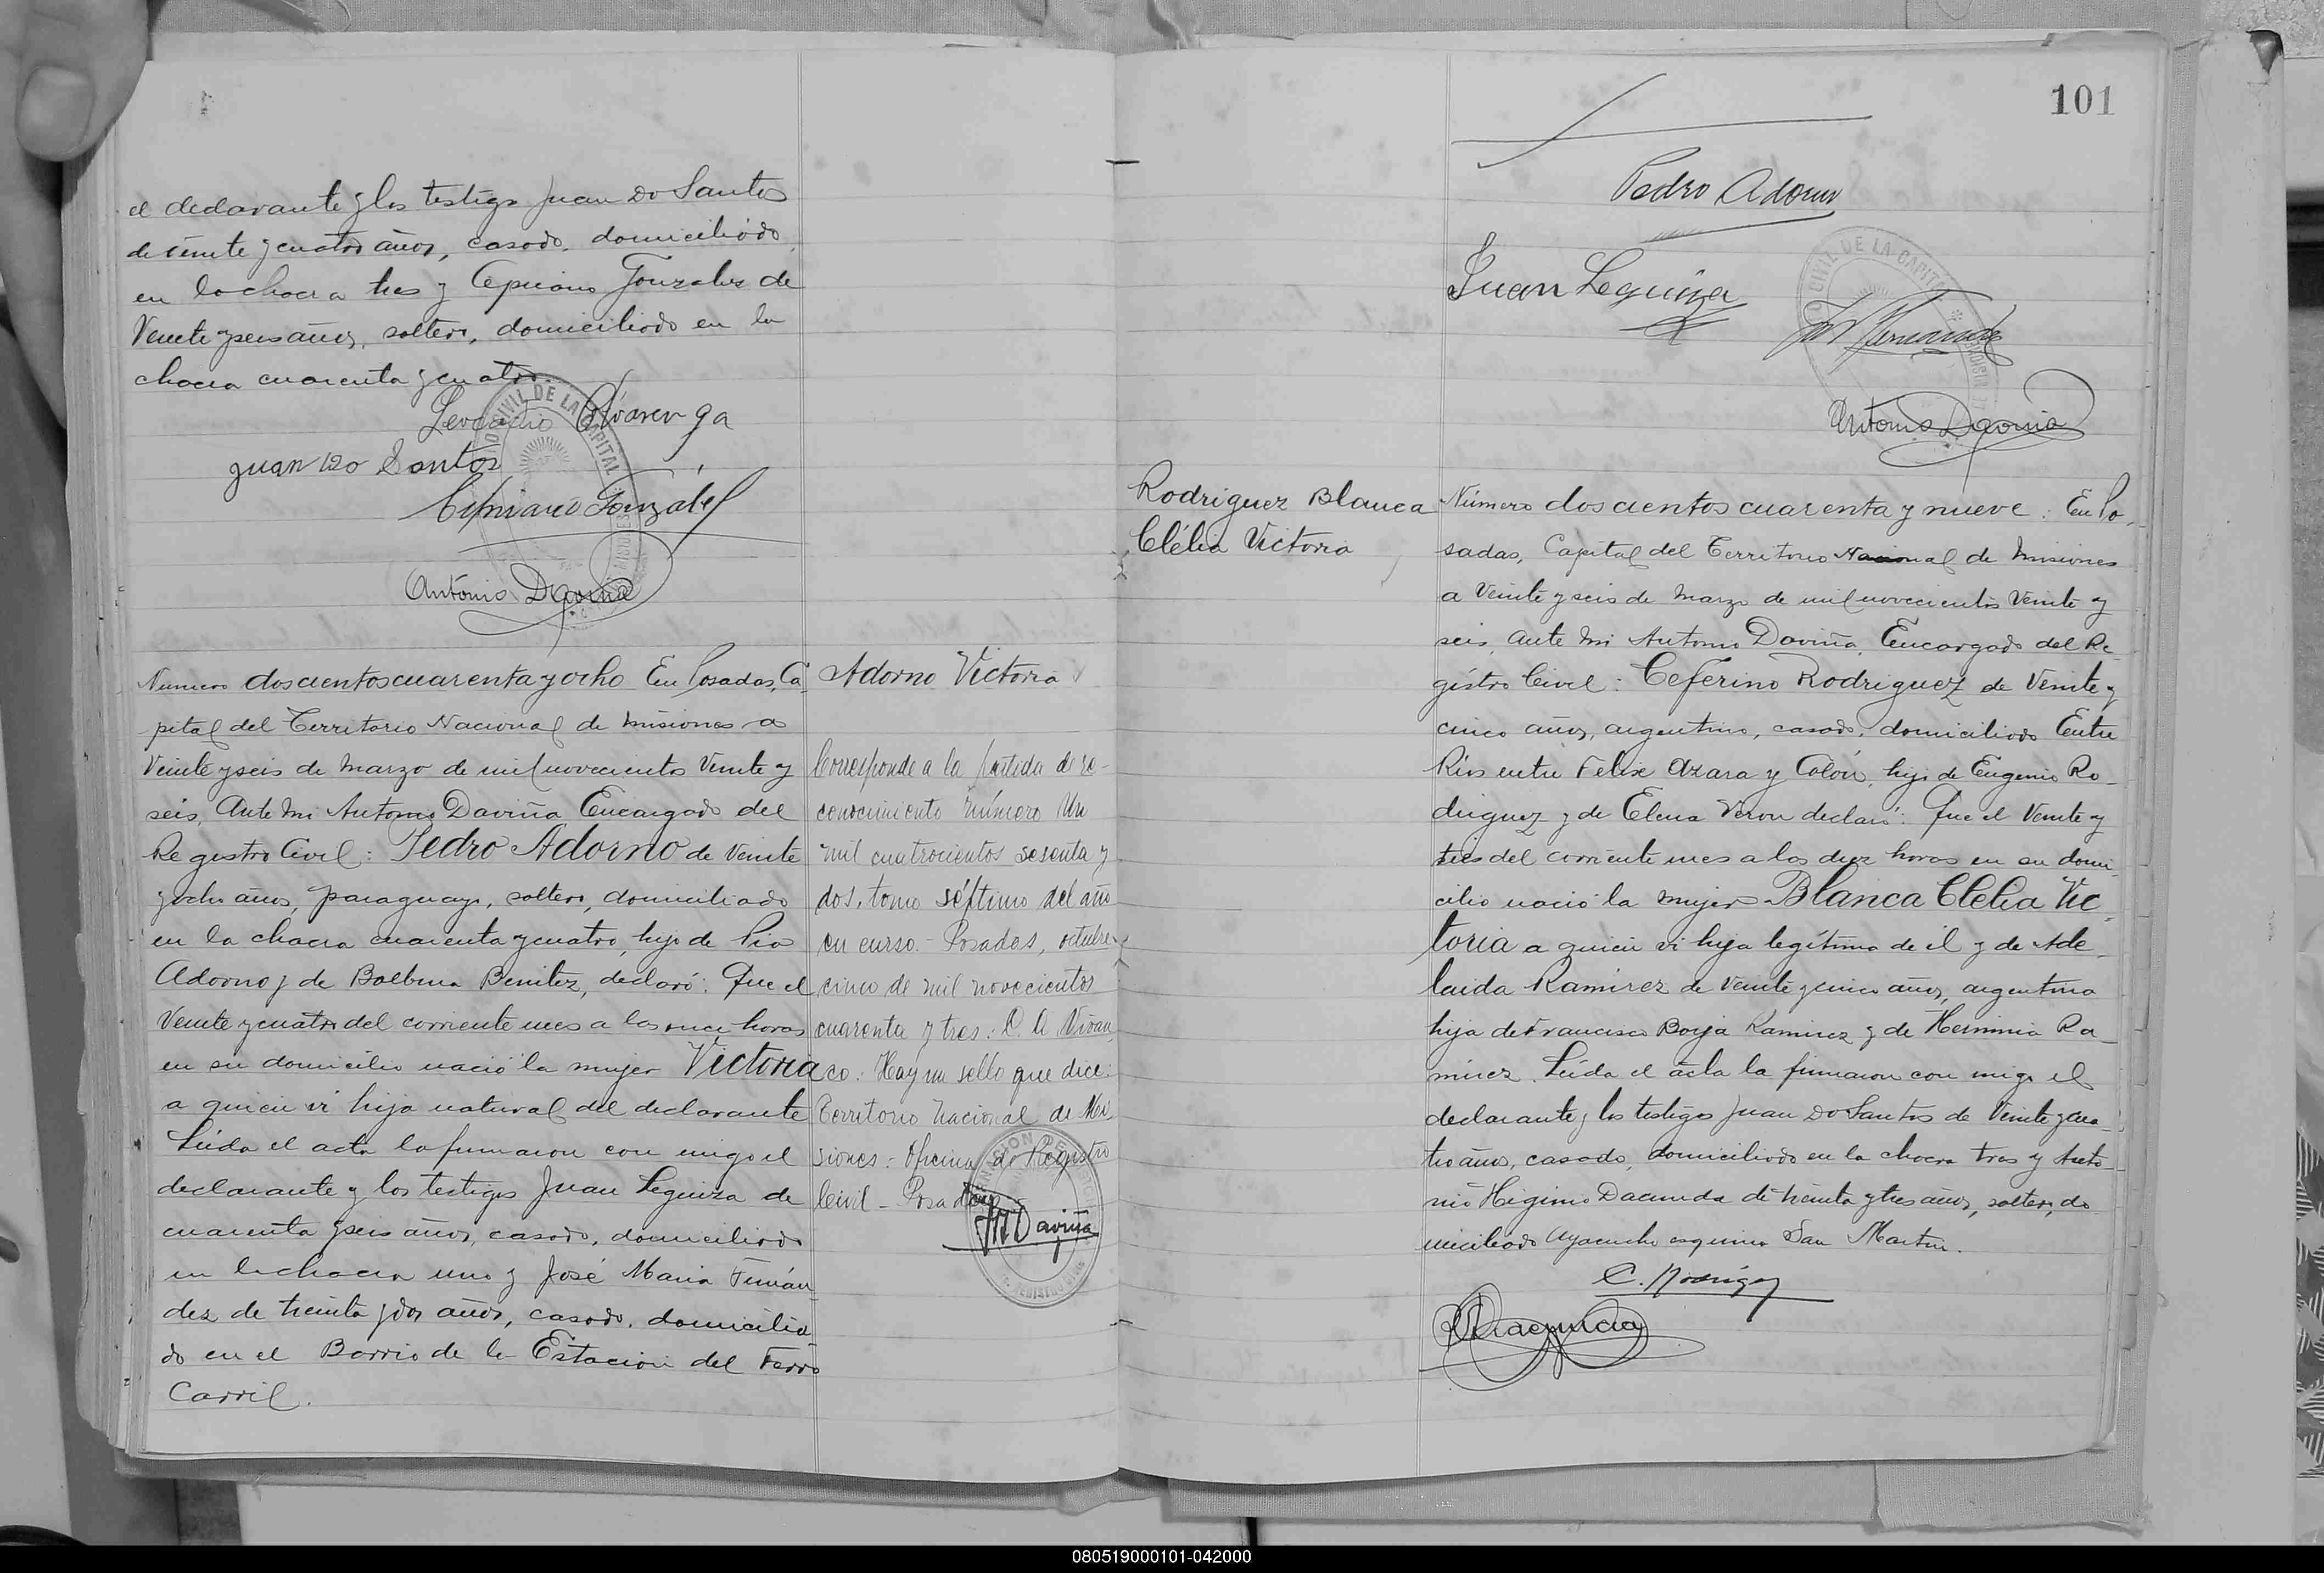 el declarante y los testigos Juan Do Santos
de veinte y cuatro años, casado, domiciliado
en la chacra tres y Cipriano Gonzalez de
Veinte y seis años, soltero, domiciliado en la
chacra cuarenta y cuatro.
Leocadio Alvarenga
Juan Do Santos
Cipriano Gonzalez
Antonio Daviña
Numero doscientos cuarenta y ocho En Posadas, Ca
pital del Territorio Nacional de Misiones a
Veinte y seis de Marzo de mil novecientos Veinte y
seis, Ante Mi Antonio Daviña Encargado del
Registro Civil: Pedro Adorno de Veinte
y ocho años, paraguayo, soltero, domiciliado
en la chacra cuarenta y cuatro, hijo de Pio
Adorno y de Balbina Benitez, declaró: Que el
Veinte y cuatro del corriente mes a las once horas
en su domicilio nació la mujer Victoria
a quien vi hija natural del declarante
Leida el acta la firmaron con migo el
declarante y los testigos Juan Leguiza de
cuarenta y seis años, casado, domiciliado
en la chacra uno y José Maria Fernán
dez de treinta y dos años, casado, domicilia
do en el Barrio de la Estación del Ferro
Carril.
Adorno Victoria
Corresponde a la partida de re-
conocimiento número Un
mil cuatrocientos sesenta y
dos, tomo séptimo del año
en curso.- Posadas, octubre
cinco de mil novecientos
cuarenta y tres: C. A. Vivan
co: Hay un sello que dice:
Territorio Nacional de Mi
siones: Oficina de Registro
Civil - Posadas
M Daviña
101
Pedro Adorno
Juan Leguiza
J M Fernandez
Antonio Daviña
Rodriguez Blanca
Clélia Victoria
Número doscientos cuarenta y nueve: En Po
sadas, Capital del Territorio Nacional de Misiones
a Veinte y seis de Marzo de mil novecientos Veinte y
seis, ante Mi Antonio Daviña, Encargado del Re
gistro Civil: Ceferino Rodriguez de Veinte y
cinco años, argentino, casado, domiciliado Entre
Rios entre Felix Azara y Colón, hijo de Eugenio Ro
driguez y de Elena Veron declaró: Que el Veinte y
tres del corriente mes a las diez horas en su domi
cilio nació la mujer Blanca Clelia Vic
toria a quien vi hija legítima de él y de Ade
laida Ramirez de Veinte y cinco años, argentina
hija de Francisco Borja Ramirez y de Herminia Ra
mirez. Leida el acta la firmaron con migo el
declarante y los testigos Juan Do Santos de Veinte y cua
tro años, casado, domiciliado en la chacra tres y Anto
nio Higinio Dacunda de treinta y tres años, soltero, do
miciliado Ayacucho esquina San Martin.
C. Rodrigez
080519000101-042000